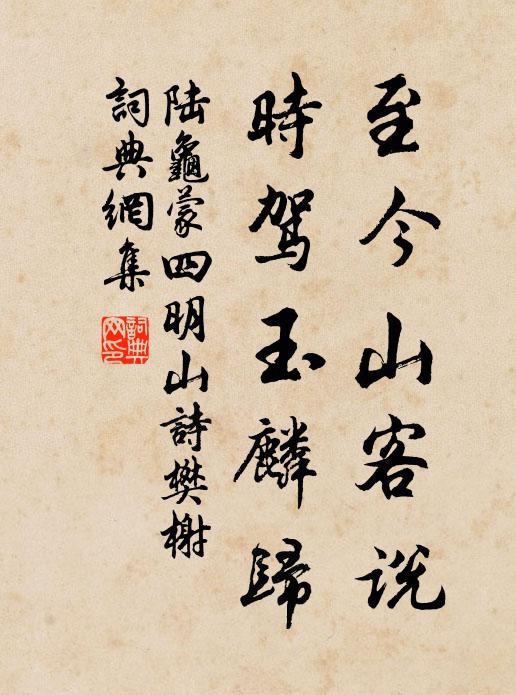 至今山客說
時駕玉麟歸
陸龜蒙四明山詩樊榭
詞典網集
詞典网印